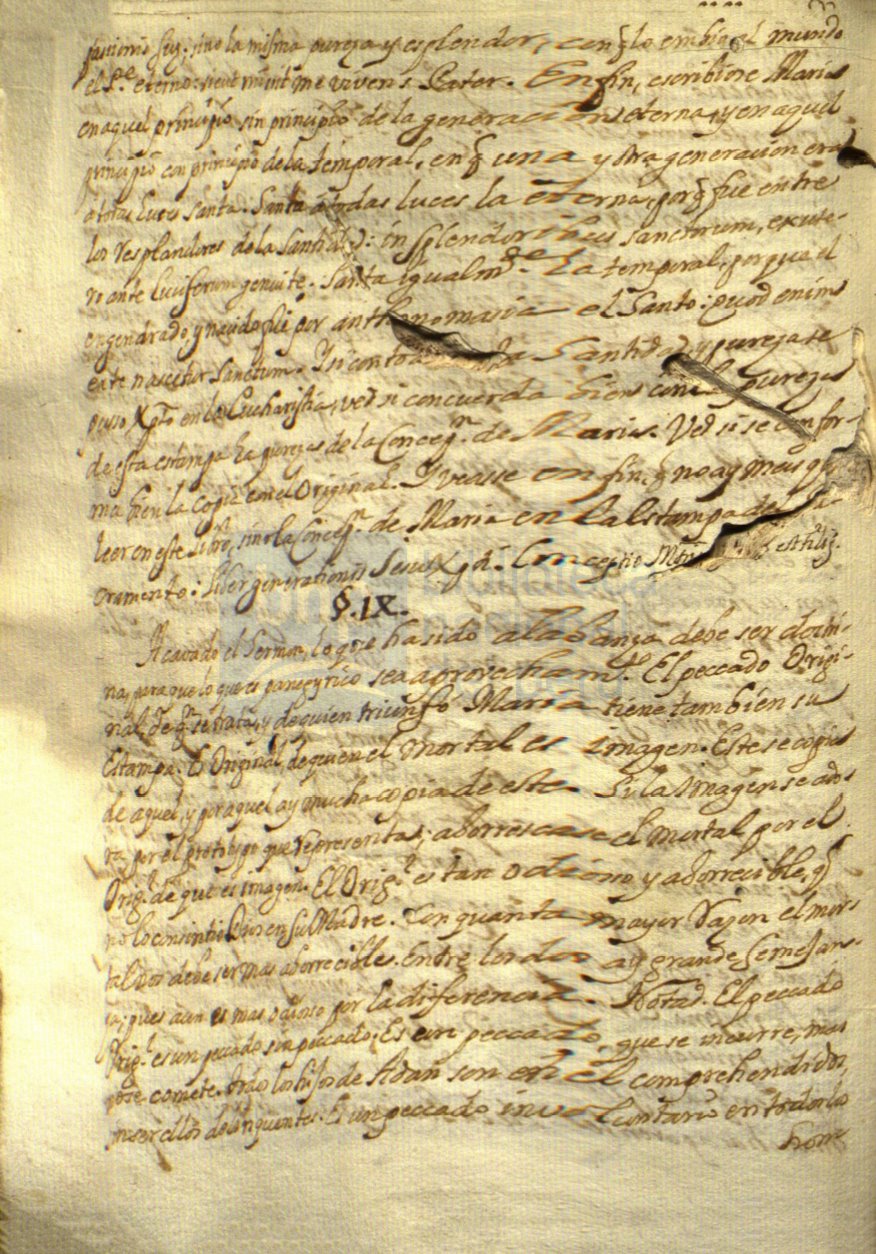 sino la misma pureza y esplendor, con q̃ lo embio al mundo
el P.e eterno: sicut misit me vivens Pater. En fin, escribiose Maria
en aquel principio sin principio de la generacion eterna, y en aquel
principio con principio de la temporal, en q̃ una y otra generacion era
a todas luces santa. Santa a todas luces la eterna, porq̃ fue entre
los resplandores de la Santidad: in splendoribus sanctorum, ex ute-
ro ante luciferum genui te. Santa igualm.te la temporal, porque el
engendrado, y nacido fue por anthonomasia el Santo: quod enim
ex te nascetur Sanctum. Y si con toda Santidad y pureza se
puso Xp̃to en la Eucharistia, ved si concuerda bien con la pureza
de esta estampa la pureza de la Concep.n de Maria. Ved si se confor-
ma bien la copia con el Original. Y vease en fin, q̃ no ay mas q̃
leer en este libro, sino la Concep.n de Maria en la Estampa del Sa-
cramento: Liber generationis Jesu Xp̃i. Conceptio
§. IX.
Acavado el Sermon, lo q̃ se ha sido alabanza, debe ser doctri-
na, para que lo que es panegyrico sea aprovecham.to El peccado Origi-
nal, de q̃ se trata, y de quien triunfó Maria tiene tambien su
Estampa. El Original, de quien el mortal es imagen. Este se copia
de aquel, y por aquel ay mucha copia de este. Si la imagen se ado-
ra por el prototypo que representa; aborrescase el mortal por el
Orig.l de que es imagen. El Orig.l es tan odioso y aborrecible, q̃
no lo consintió Dios en su Madre. Con quanta mayor razon el mor-
tal nos debe ser mas aborrecible. Entre los dos ay grande semejan-
sa; pues aun es mas odioso por la diferencia. Notad. El peccado
Orig.l es un peccado sin peccado: Es un peccado, que se incurre, mas
no se comete. Todos los hijos de Adan son en el comprehendidos,
sin ser ellos delinquentes. Es un peccado involuntario en todos los
hom-